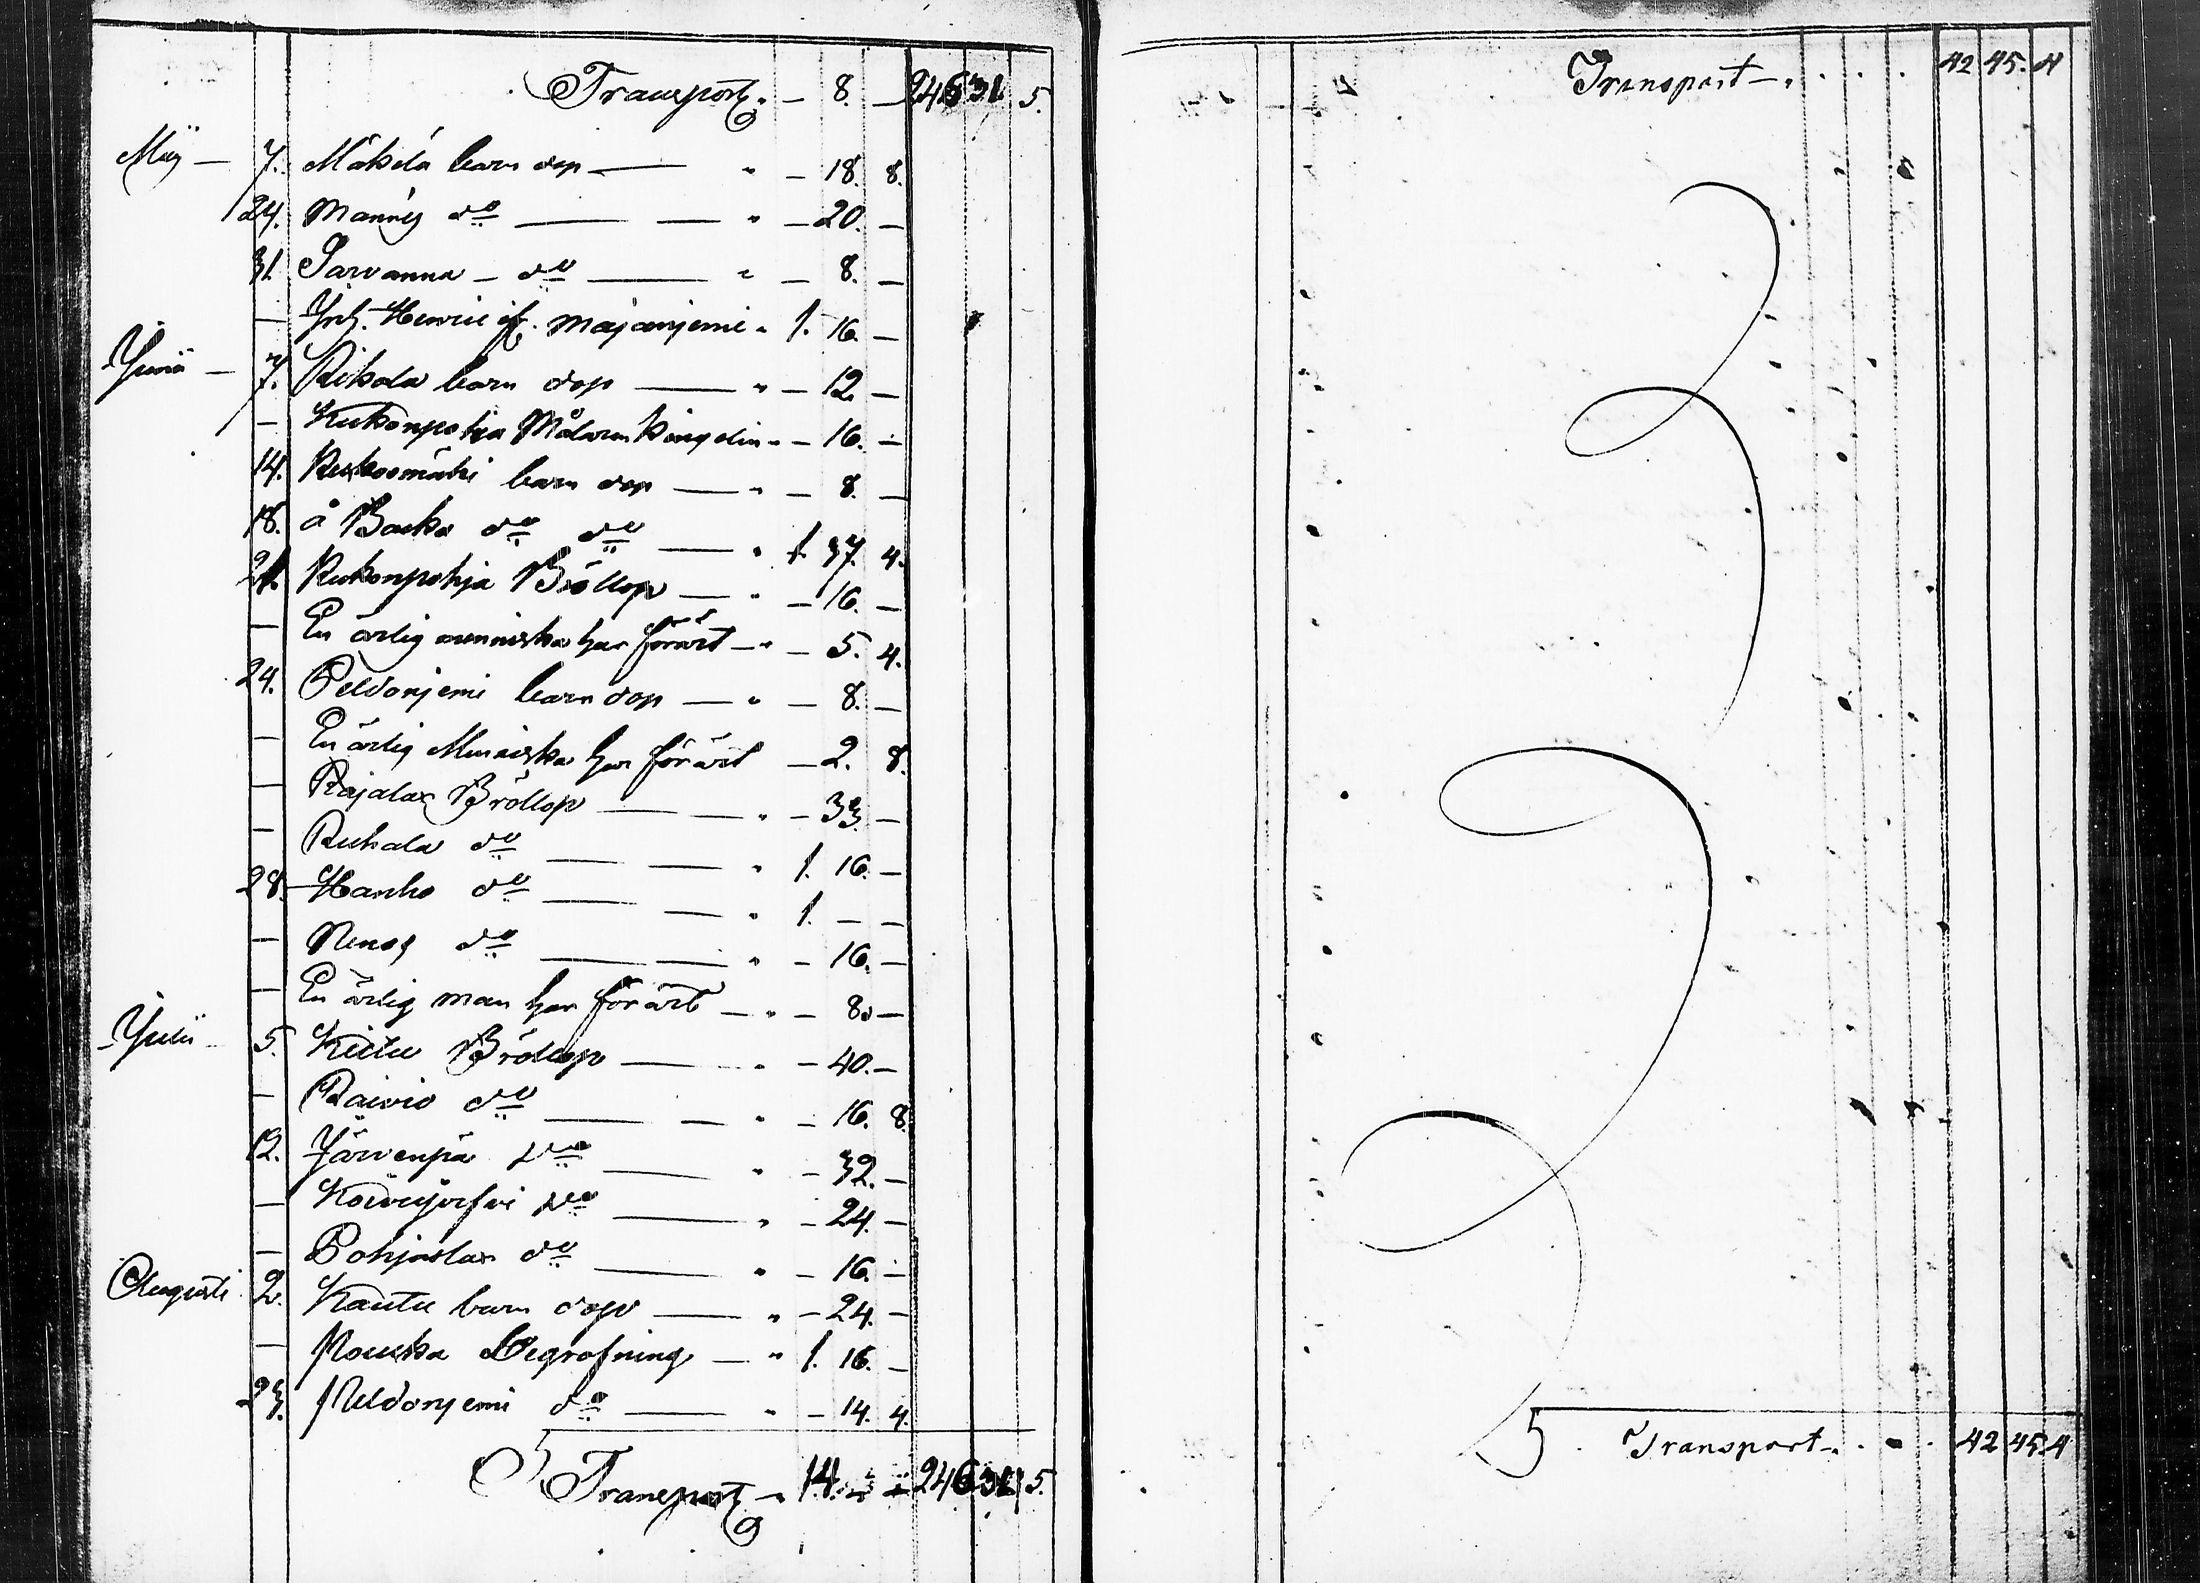 Transport. — 8. — 246 31. 5.
Maij — 7. Mäkelä barn dop — " — 18. 8.
24. Mannis do — " — 20. —
31. Sarvanna — do — " — 8. —
— Henric Majanjemi " 1. 16. —
Junii — 7. Rikala barn dop — " — 12. —
— Kukonpohja Målaren — 16. —
14. Keskoomäki barn dop — " — 8. —
18. å Backa do do — " 1. 37. 4.
21. Kukonpohja Bröllop — " — 16. —
— En ärlig menniska har förärt — " — 5. 4.
24. Peldonjemi barn dop — " — 8. —
— En ärlig Menniska har förärt — 2. 8.
— Rajalax Bröllop — " — 33. —
— Ruhala do — " 1. 16. —
28. Hanho do — " 1. — —
— do — " — 16. —
— En ärlig man har förärt — " — 8. —
Julii — 5. Kiilu Bröllop — " — 40. —
— Raivio do — " — 16. 8.
12. Järvenpä do — " — 32. —
— Koivujerfvi do — " — 24. —
— Pohjaslax do — " — 16. —
Augusti 2. Kautu barn dop — " — 24. —
— Rouska Begrafning — " 1. 16. —
23. Peldonjemi do — " — 14. 4.
Transport — " 14. — — 246 31 5.
Transport — " . . . . 42 45. 4
Transport — . . . . 42 45 4